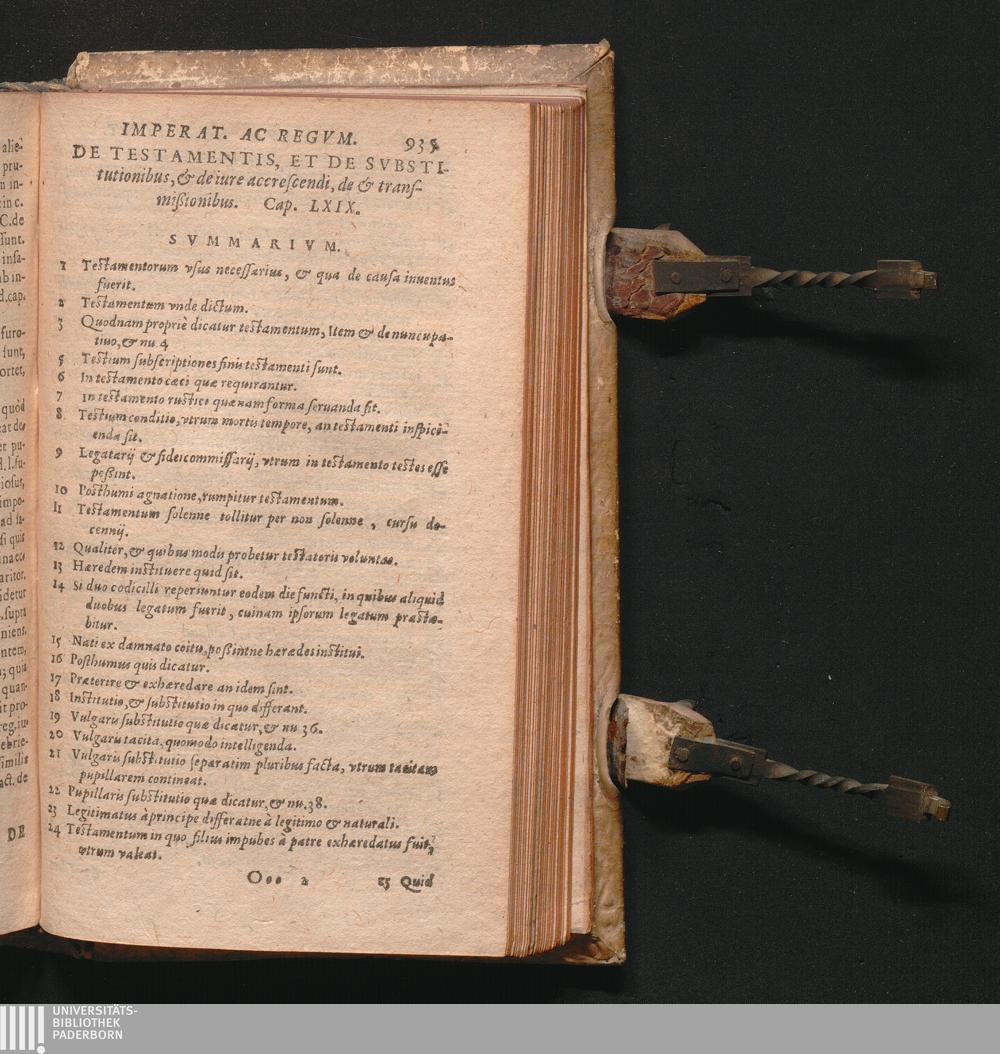 alie-
pru-
n in-
in c.
C.de
ſunt.
inſa-
ab in-
d.cap.
furo-
ſunt,
ortet,
quòd
eat de
et pu-
l. l.fu-
ioſus,
impo-
ad ſa-
ſi quis
aritor.
idetur
.ſupra
nient.
ntem,
quia
quan-
it pro-
reg.iu-
ebrie-
ſimilis
act. de
DE
IMPERAT. AC REGVM. 935
DE TESTAMENTIS, ET DE SVBSTI-
tutionibus, & de iure accreſcendi, de & tranſ-
miſsionibus. Cap. LXIX.
SVMMARIVM.
1 Teſtamentorum vſus neceſſarius, & qua de cauſa inuentus
fuerit.
2 Teſtamentum vnde dictum.
3 Quodnam propriè dicatur teſtamentum, Item & de nuncupa-
tiuo, & nu.4
5 Teſtium ſubſcriptiones finis teſtamenti ſunt.
6 In teſtamento cæci quæ requirantur.
7 In teſtamento ruſtico quænam forma ſeruanda ſit.
8. Teſtium conditio, vtrum mortis tempore, an teſtamenti inſpici-
enda ſit.
9 Legatarij & fideicommiſſarij, vtrum in teſtamento teſtes eſſe
poßint.
10 Poſthumi agnatione, rumpitur teſtamentum.
11 Teſtamentum ſolenne tollitur per non ſolenne, curſu de-
cennij.
12 Qualiter, & quibus modis probetur teſtatoris voluntas.
13 Hæredem inſtituere quid ſit.
14 Si duo codicilli reperiuntur eodem die functi, in quibus aliquid
duobus legatum fuerit, cuinam ipſorum legatum præſta-
bitur.
15 Nati ex damnato coitu, poßintne hæredes inſtitui.
16 Poſthumus quis dicatur.
17 Præterire & exhæredare an idem ſint.
18 Inſtitutio, & ſubſtitutio in quo differant.
19 Vulgaris ſubſtitutio quæ dicatur, & nu 36.
20 Vulgaris tacita, quomodo intelligenda.
21 Vulgaris ſubſtitutio ſeparatim pluribus facta, vtrum tacitam
pupillarem contineat.
22 Pupillaris ſubſtitutio quæ dicatur, & nu.38.
23 Legitimatus à principe differatne à legitimo & naturali.
24 Teſtamentum in quo filius impubes à patre exhæredatus fuit,
vtrum valeat.
Ooo 2 25 Quid
UNIVERSITÄTS-
BIBLIOTHEK
PADERBORN